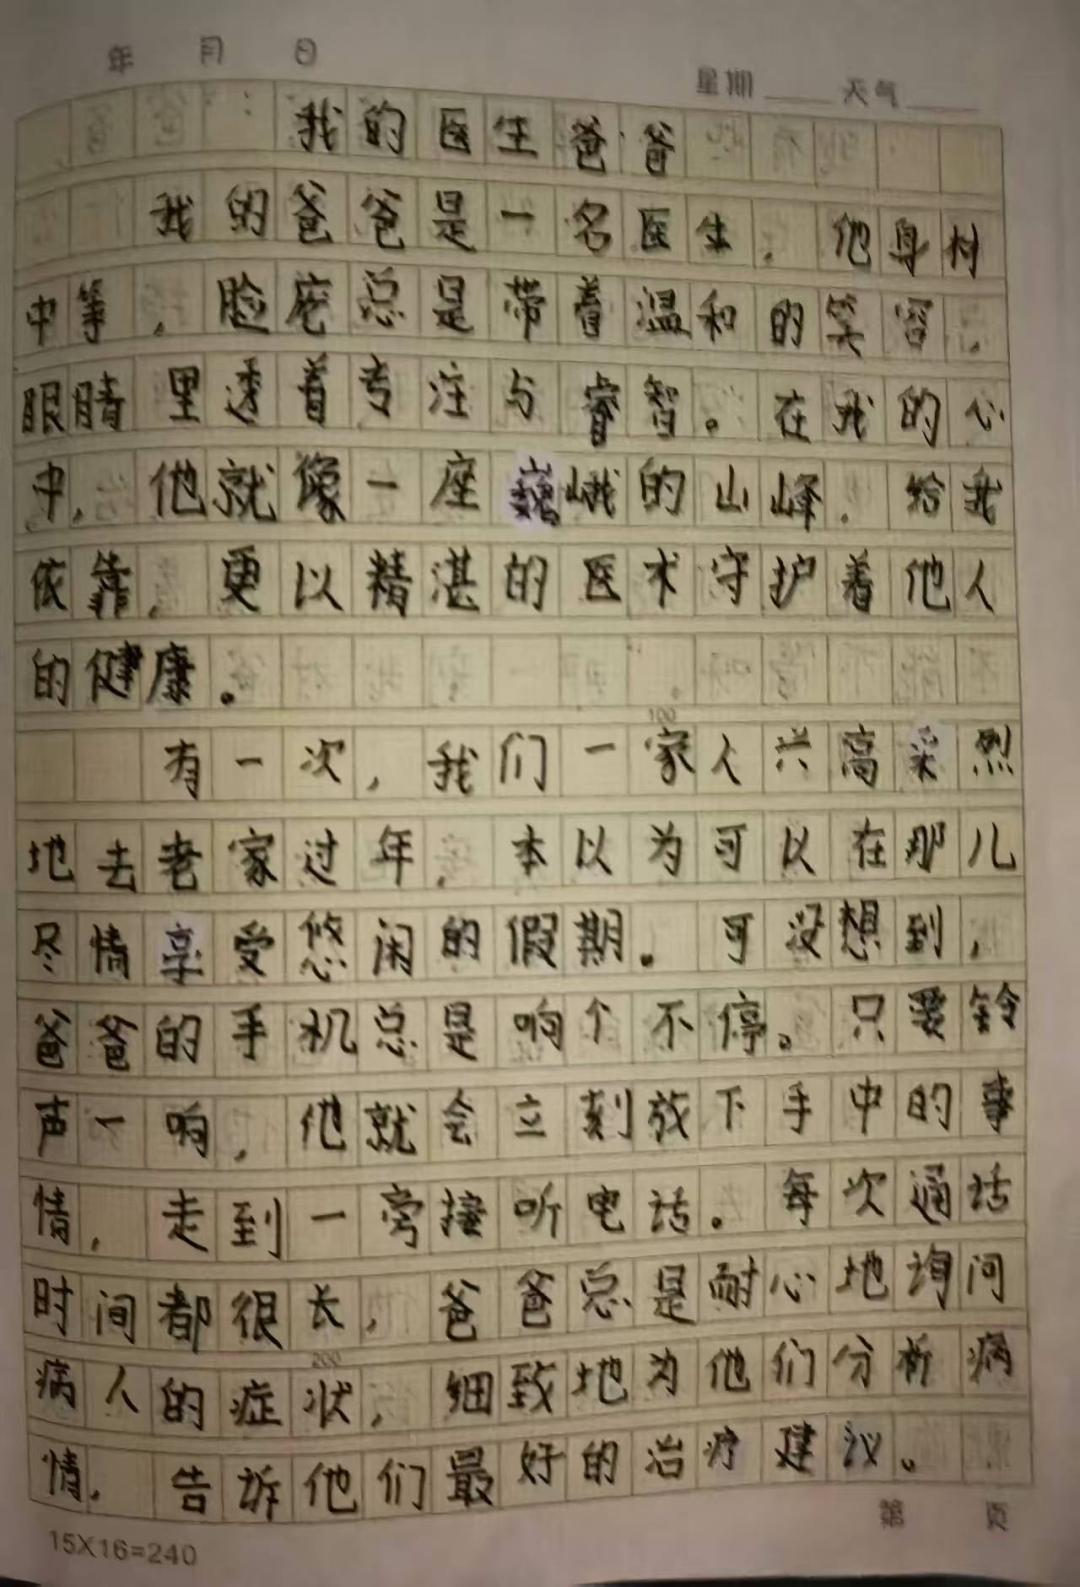 年 月 日
星期____ 天气____
我的医生爸爸
我的爸爸是一名医生，他身材
中等，脸庞总是带着温和的笑容，
眼睛里透着专注与睿智。在我的心
中，他就像一座巍峨的山峰，给我
依靠，更以精湛的医术守护着他人
的健康。
100
有一次，我们一家人兴高采烈
地去老家过年，本以为可以在那儿
尽情享受悠闲的假期。可没想到，
爸爸的手机总是响个不停。只要铃
声一响，他就会立刻放下手中的事
情，走到一旁接听电话。每次通话
时间都很长，爸爸总是耐心地询问
200
病人的症状，细致地为他们分析病
情，告诉他们最好的治疗建议。
第 页
15X16=240